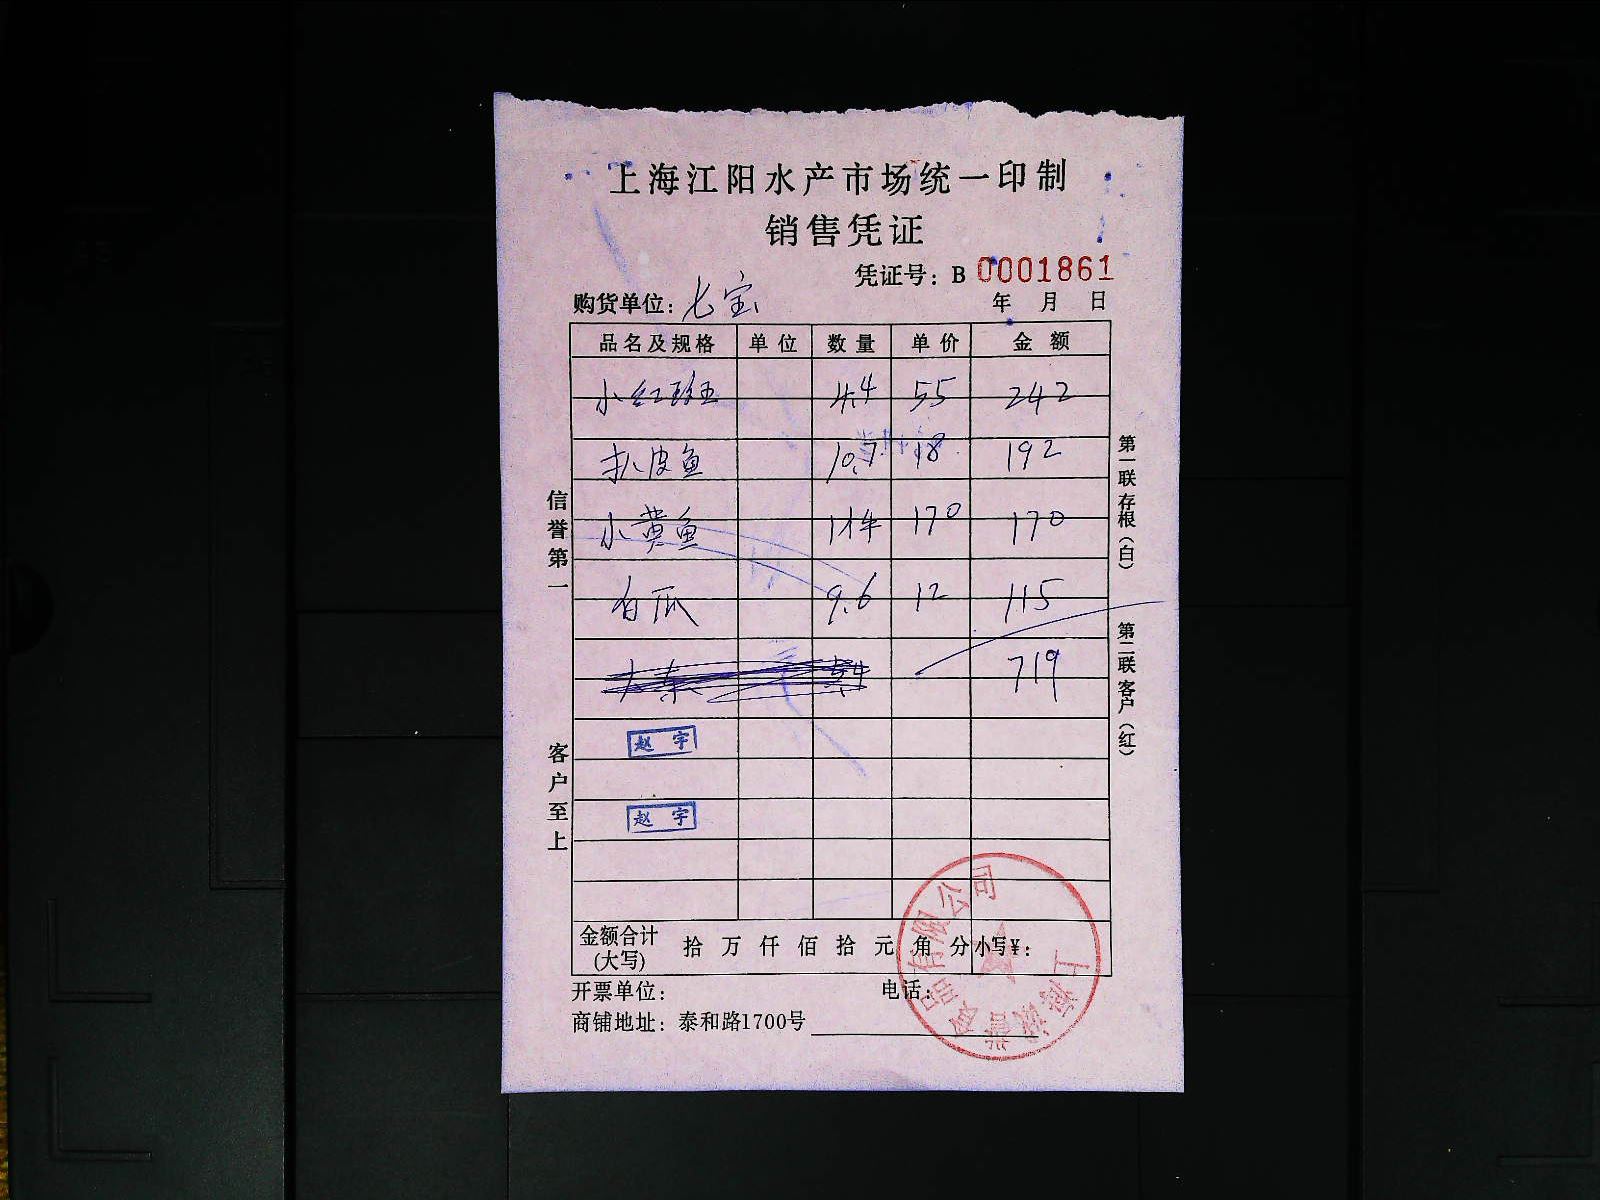 上海江阳水产市场统一印制
销售凭证
凭证号：B 0001861
购货单位：七宝 年 月 日
品名及规格 单位 数量 单价 金额
小红斑 4.4 55 242
扒皮鱼 10.7 18 192
小黄鱼 1件 170 170
白瓜 9.6 12 115
719
赵宇
赵宇
金额合计(大写) 拾 万 仟 佰 拾 元 角 分 小写¥：
开票单位： 电话：
商铺地址：泰和路1700号
信誉第一 客户至上
第一联存根（白） 第二联客户（红）